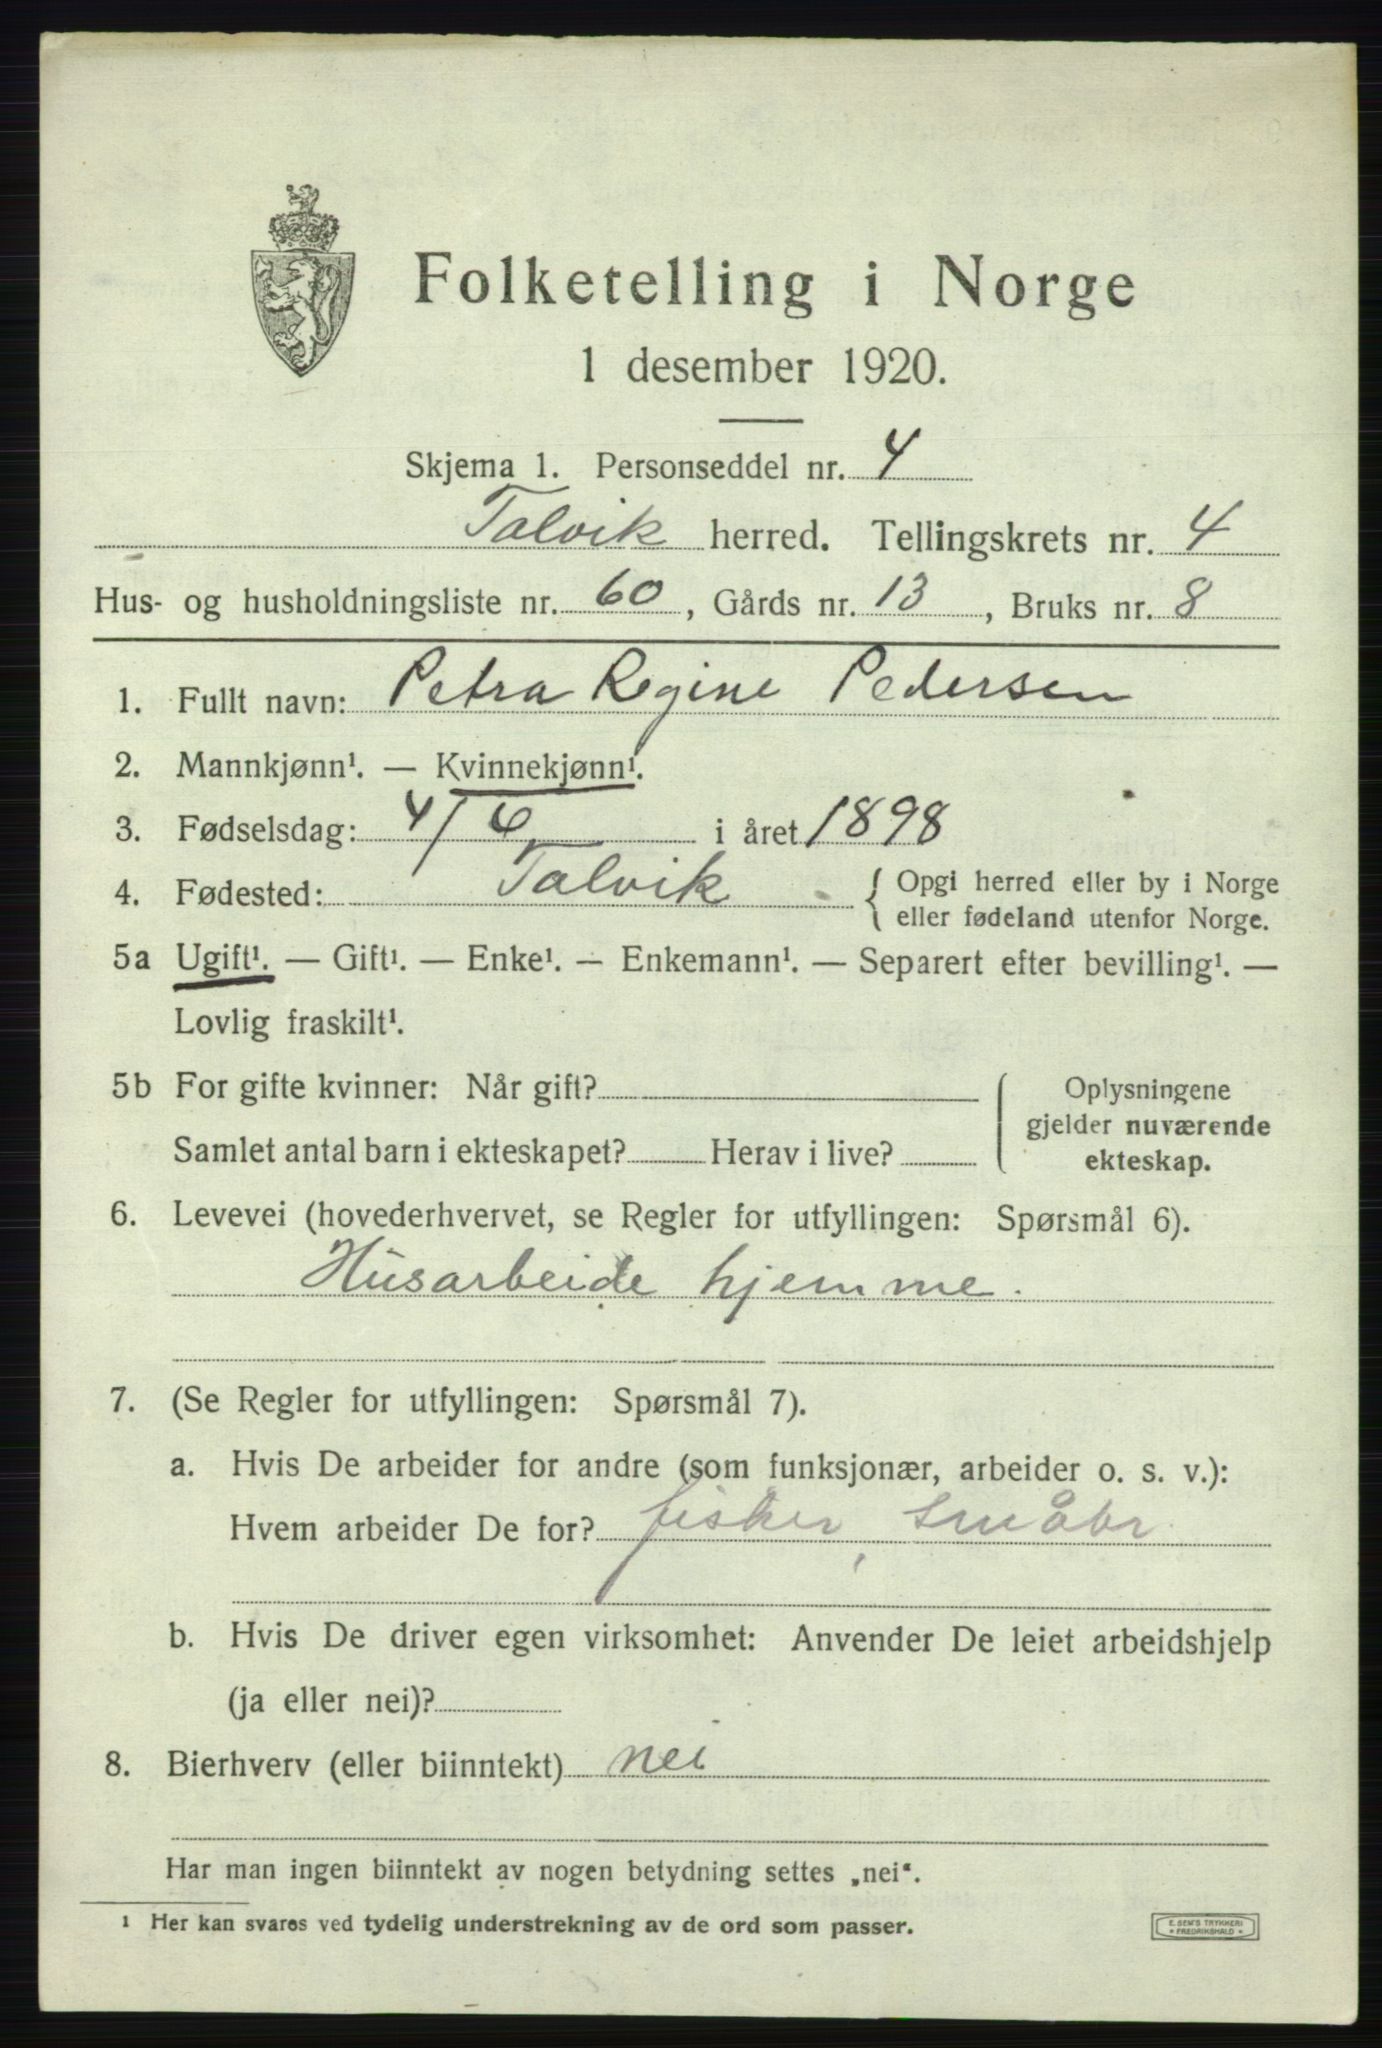 Folketelling i Norge
1 desember 1920.
Skjema 1. Personseddel nr. 4
Talvik herred. Tellingskrets nr. 4
Hus- og husholdningsliste nr. 60, Gårds nr. 13, Bruks nr. 8
1. Fullt navn: Petra Regine Pedersen
2. Mannkjønn¹. — Kvinnekjønn¹.
3. Fødselsdag: 4/6 i året 1898
4. Fødested: Talvik { Opgi herred eller by i Norge
eller fødeland utenfor Norge.
5a Ugift¹. — Gift¹. — Enke¹. — Enkemann¹. — Separert efter bevilling¹. —
Lovlig fraskilt¹.
5b For gifte kvinner: Når gift?
Samlet antal barn i ekteskapet? Herav i live?
Oplysningene
gjelder nuværende
ekteskap.
6. Levevei (hovederhvervet, se Regler for utfyllingen: Spørsmål 6).
Husarbeide hjemme.
7. (Se Regler for utfyllingen: Spørsmål 7).
a. Hvis De arbeider for andre (som funksjonær, arbeider o. s. v.):
Hvem arbeider De for? fisker, småbr
b. Hvis De driver egen virksomhet: Anvender De leiet arbeidshjelp
(ja eller nei)?
8. Bierhverv (eller biinntekt) nei
Har man ingen biinntekt av nogen betydning settes „nei“.
¹ Her kan svares ved tydelig understrekning av de ord som passer.
E. SEM'S TRYKKERI
* FREDRIKSHALD *